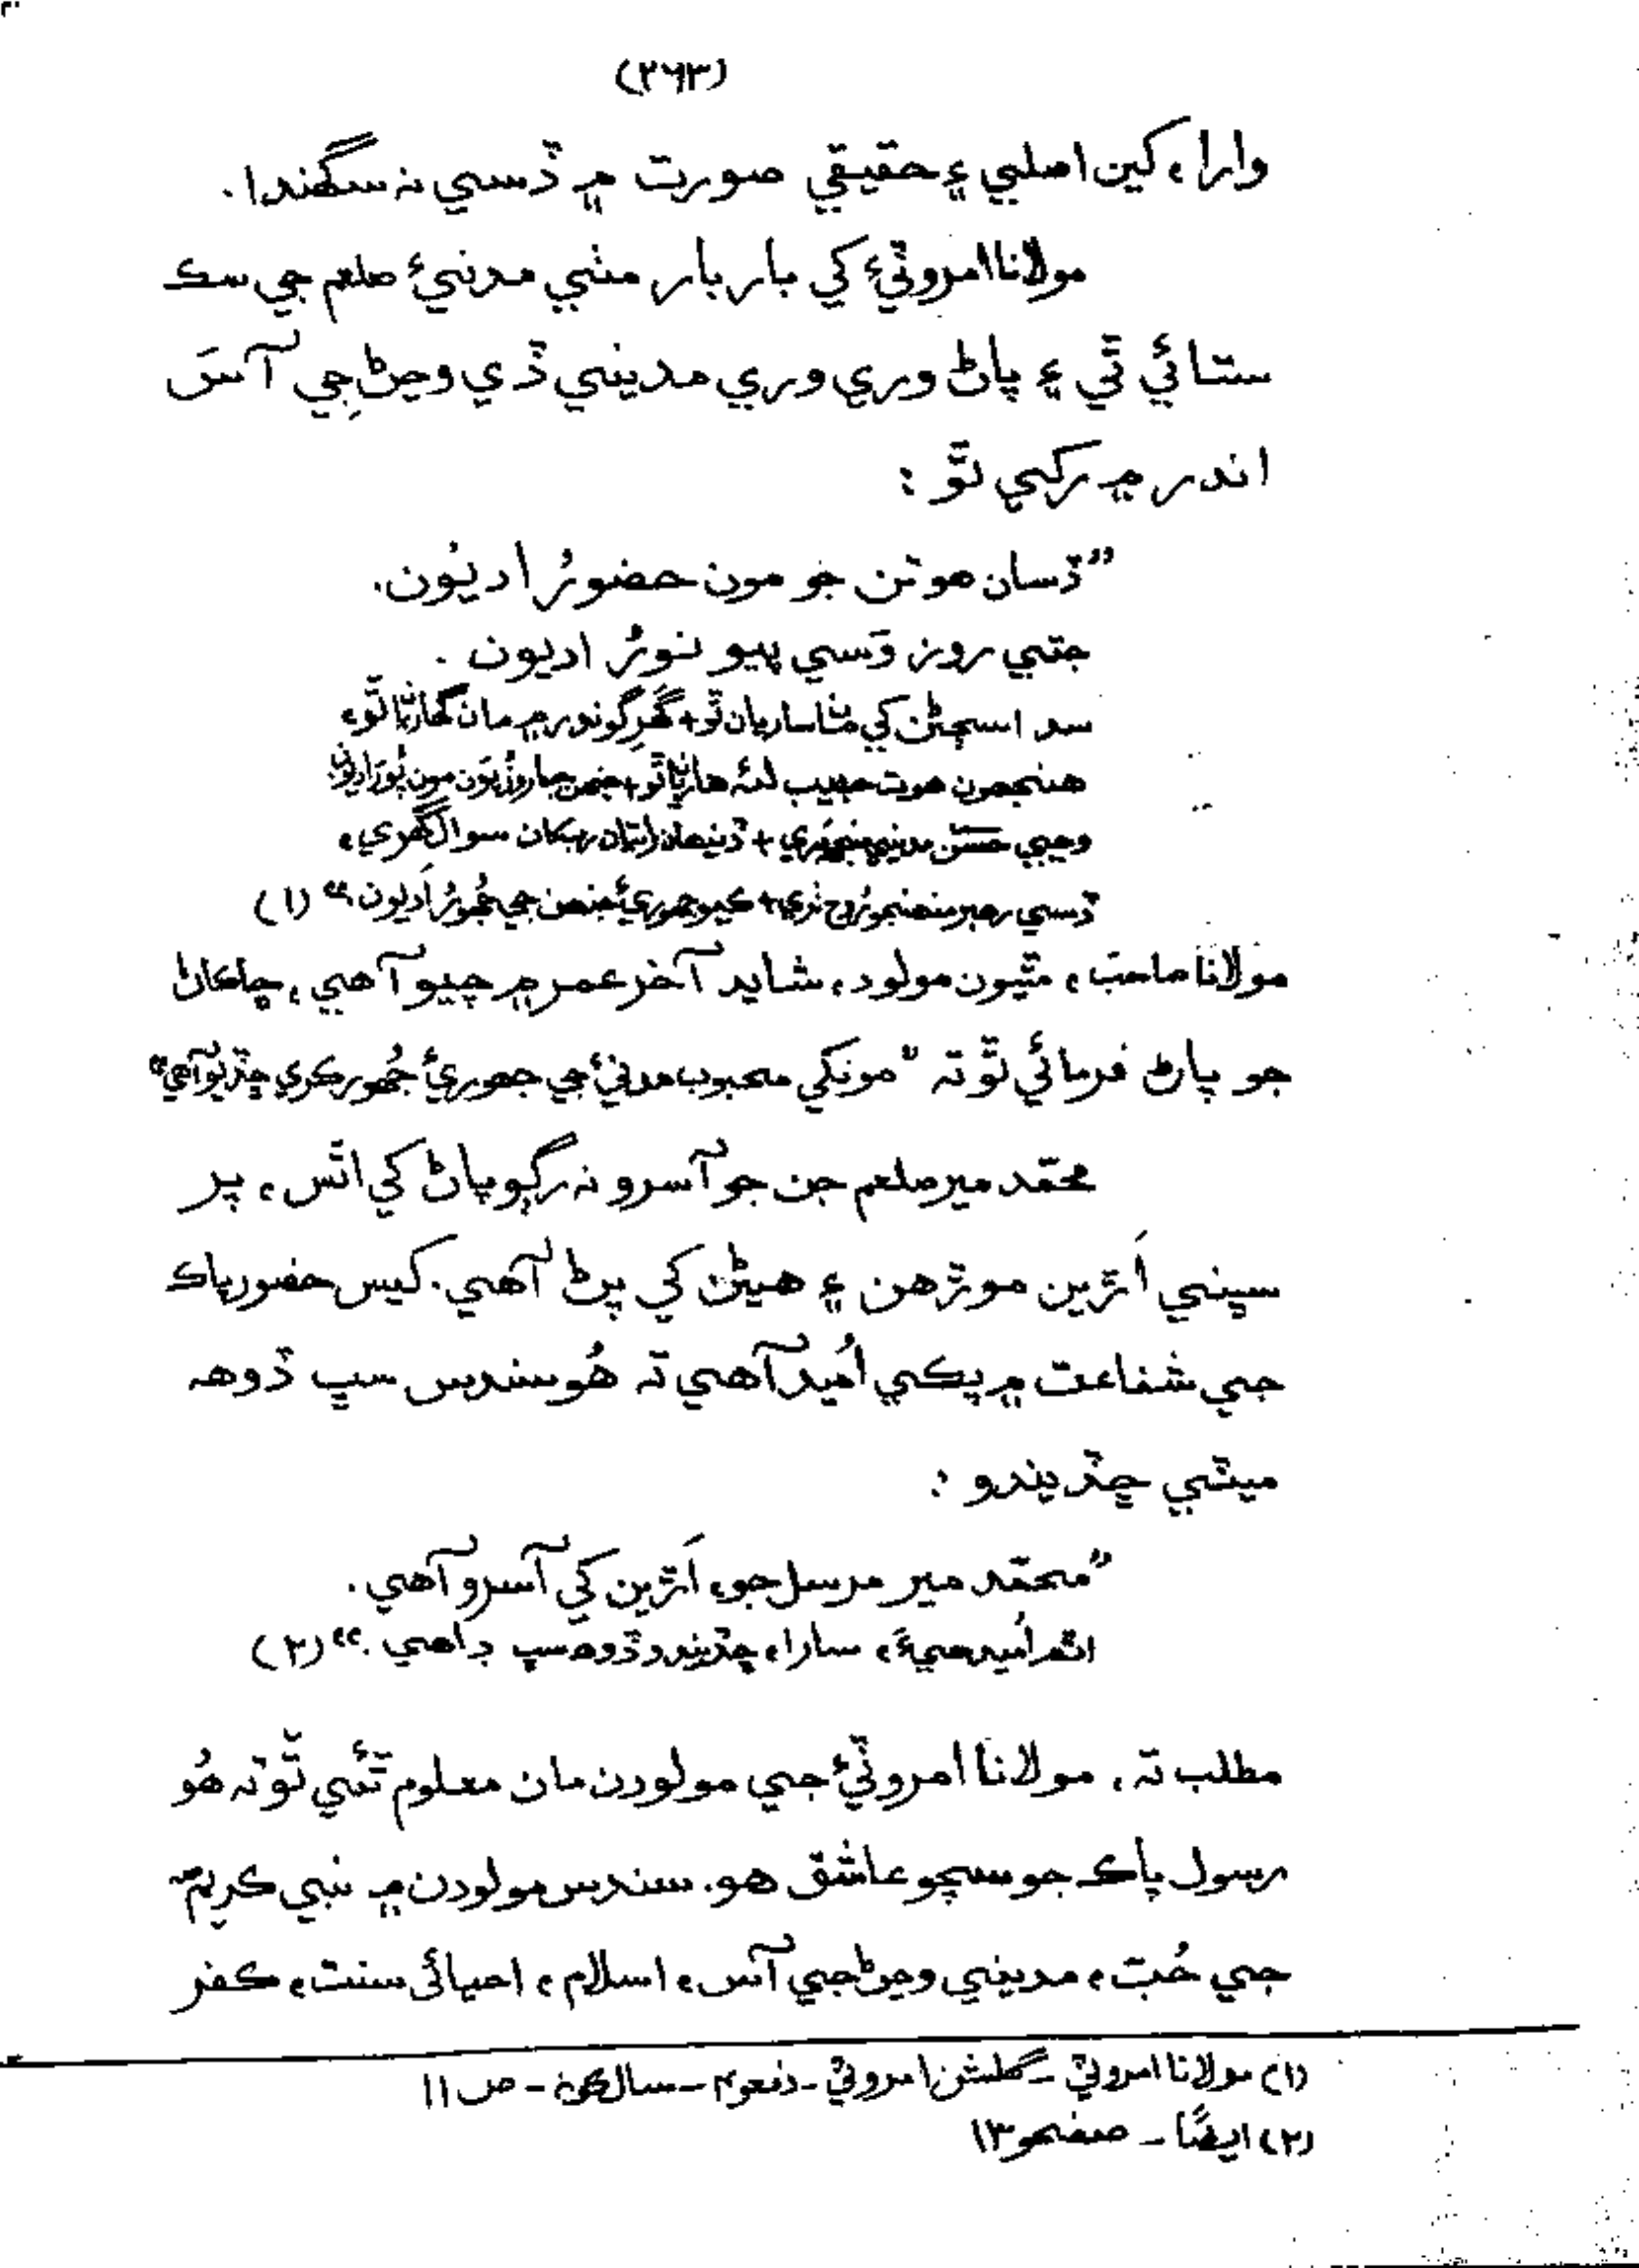 (۲۶۳)
وارا، کين اصلي ۽ حقيقي صورت ۾ ڏسي نہ سگهندا.
مولانا امروٽيءَ کي بار بار مٺي مدنيءَ صلعم جي سڪ
ستائي ٿي ۽ پاڻ وري وري مديني ڏي وڃڻ جي آسَ
اندر ۾ رکي ٿو :
”ڏسان هوتن جو مون حضورُ اديون.
جتي روز وَسي پيو نورُ اديون .
سدا سڄڻن کي مٺا ساريان ٿو + گهرِ گوندر ۾ مان گهاريان ٿو،
هنجهون هوت حبيب لئہ هاريان ٿو،
وڃي مديني سوال گهري،
ڏسي رهبر اَديون “ (۱)
مولانا صاحبَ، مٿيون مولود، شايد آخر عمر ۾ چيو آهي، ڇاڪاڻ
جو پاڻ فرمائي ٿو تہ ”مونکي محبوب مدنيءَ جي جهوريءَ جُهور ڪري ڇڏيو آهي“
محمّد مير صلعم جن جو آسرو نہ رڳو پاڻ کي اٿس، پر
سڀني اَڙين موڙهن ۽ هيڻن کي پڻ آهي. کيس حضور پاڪ
جي شفاعت ۾ پڪي اُميد آهي تہ هُو سندس سڀ ڏوهہ
ميٽي ڇڏيندو :
”محمّد مير مرسل جو، اَڙين کي آسرو آهي.
اٿم اُميد هيءَ، سارا، ڇڏيندو ڏوهہ سڀ ڊاهي .“ (۲)
مطلب تہ، مولانا امروٽيءَ جي مولودن مان معلوم ٿئي ٿو تہ هُو
رسول پاڪ جو سچو عاشق هو. سندس مولودن ۾ نبي ڪريمؐ
جي حُبَ، مديني وڃڻ جي آس، اسلام، احيائي سنت، ڪفر
(۱) مولانا امروٽي – گلشن امروٽي – – – ص ۱۱
(۲) ايضًا – صفحو ۱۳